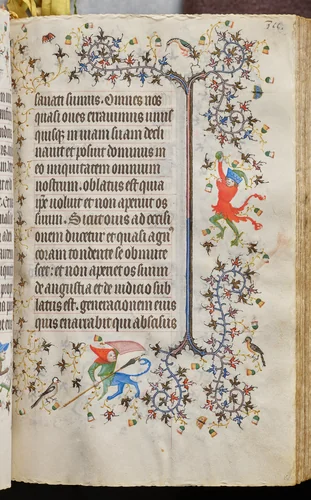 sanati sumus. Omnes nos
quasi oues errauimus unus
quisque in uiam suam decli
nauit et posuit dominus in
eo iniquitatem omnium
nostrum. oblatus est quia
ipse uoluit et non aperuit os
suum. Sicut ouis ad occisi
onem ducetur et quasi agnus
coram tondente se obmute
scet: et non aperiet os suum
de angustia et de iudicio sub
latus est. generacionem eius
quis enarrabit qui abscisus